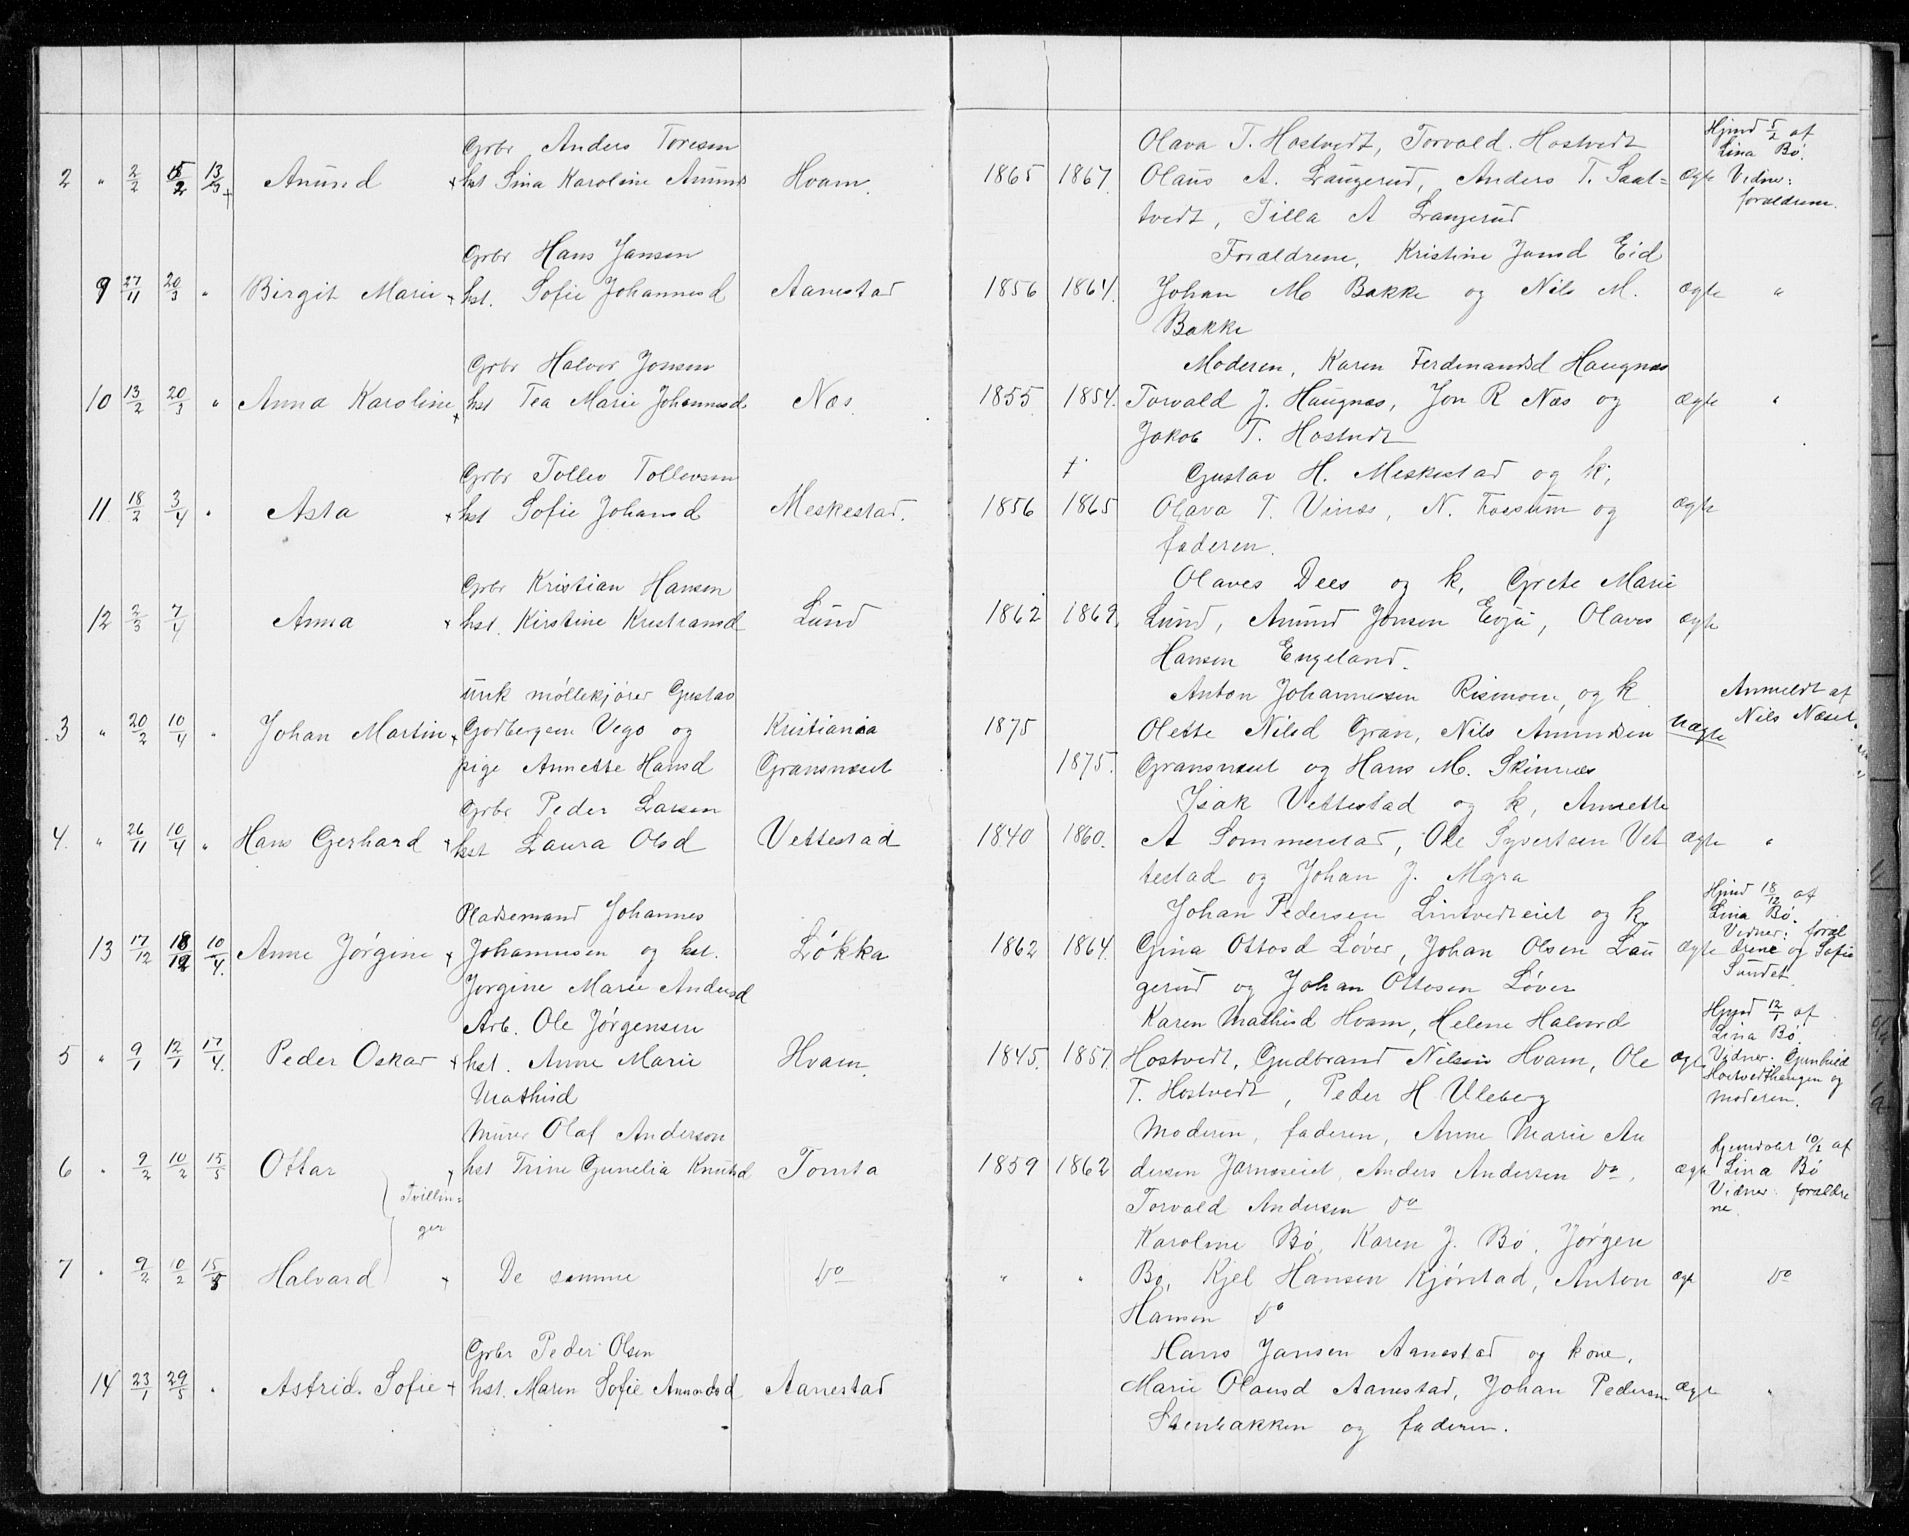 Grbr Anders Toresen
2 " 2/2 5/2 13/3 Anund hst Sina Karoline Anunds Hvam.
Grbr Hans Jansen
9 27/11 20/3 " Birgit Marie hst. Sofie Johannesd Aanestad
Grbr Halvor Jonsen
10 13/2 20/3 " Anna Karoline hst Tea Marie Johannesd Næs.
Grbr Tollev Tollevsen
11 18/2 3/4 " Asta hst Sofie Johansd Meskestad.
Grbr Kristian Hansen
12 2/3 7/4 Anna hst. Kirstine Kristiansd Lund
unk møllekjører Gustav
3 " 20/2 10/4 " Johan Martin Godbergsen Vego og Kristiania
pige Annette Hansd Gransnæset
Grbr Peder Larsen
4. " 26/11 10/4 " Hans Gerhard hst Laura Olsd Vettestad
Pladsemand Johannes
13 17/12 18/12 10/4. Anne Jørgine Johannesen og hst. Løkka
Jørgine Marie Andersd
Arb. Ole Jørgensen
5 " 9/1 12/1 17/4. Peder Oskar hst. Anne Marie Hvam.
Mathisd
Murer Olaf Anderson
6 " 9/2 10/2 15/5 Ottar hst Trine Gunelia Knutsd Tomta
Tvillin=
ger
7 " 9/2 10/2 15/5 Halvard De samme do
Grbr Peder Olsen
14 23/1 29/5 " Astrid Sofie hst. Maren Sofie Anundsd Aanestad
Olava T. Hostvedt, Torvald Hostvedt Hjmd 5/2 af
Lina Bø.
1865 1867 Olaus A. Laugerud, Anders T. Saat= Ægte Vidne:
tvedt, Tilla A Laugerud forældrene.
Forældrene, Kristine Jansd Eid
1856 1864. Johan M Bakke og Nils M. ægte "
Bakke
Moderen, Karen Ferdinandsd Haugnæs
1855 1854. Torvald J. Haugnæs, Jon R Næs og ægte "
Jakob T. Hostvedt
† Gustav H. Meskestad og k,
1856 1865 Olava T. Vinæs, N. Fossum og ægte
faderen.
Olaves Dees og k, Grete Marie
1862 1869. Lund, Anund Jonsen Evju, Olaves ægte
Hansen Engeland.
Anton Johannesen Rismoen, og k Anmeldt af
1875 Olette Nilsd Gran, Nils Anundsen uægte Nils Næset
1875. Gransnæset og Hans M. Skinnæs
Isak Vettestad og k, Annette
1840 1860. A Sommerstad, Ole Syvertsen Vet ægte "
testad og Johan J. Myra
Johan Pedersen Lintvedteiet og k, Hjmd 18/12 af
Lina Bø.
1862 1864. Gina Ottosd Løver, Johan Olsen Lau ægte Vidner: foræl
drene og Sofie
gerud og Johan Ottosen Løver Sundet.
Karen Mathisd Hvam, Helene Halvord Hjmd 12/1 af
Lina Bø
1845. 1857. Hostvedt, Gudbrand Nilsen Hvam, Ole ægte Vidner: Gunhild
Hostvedthaugen og
T. Hostvedt, Peder H Uleberg moderen.
Moderen, faderen, Anne Marie An Hjemdøbt 10/2 af
1859 1862 dersen Jarnæseiet, Anders Andersen do, ægte Lina Bø
Vidner: forældre
Torvald Andersen do ne.
Karoline Bø, Karen J. Bø, Jørgen
" " Bø, Kjel Hansen Kjørstad, Anton ægte do
Hansen do
Hans Jansen Aanestad og kone,
Marie Olausd Aanestad, Johan Pedersen ægte "
Stenbakken og faderen.